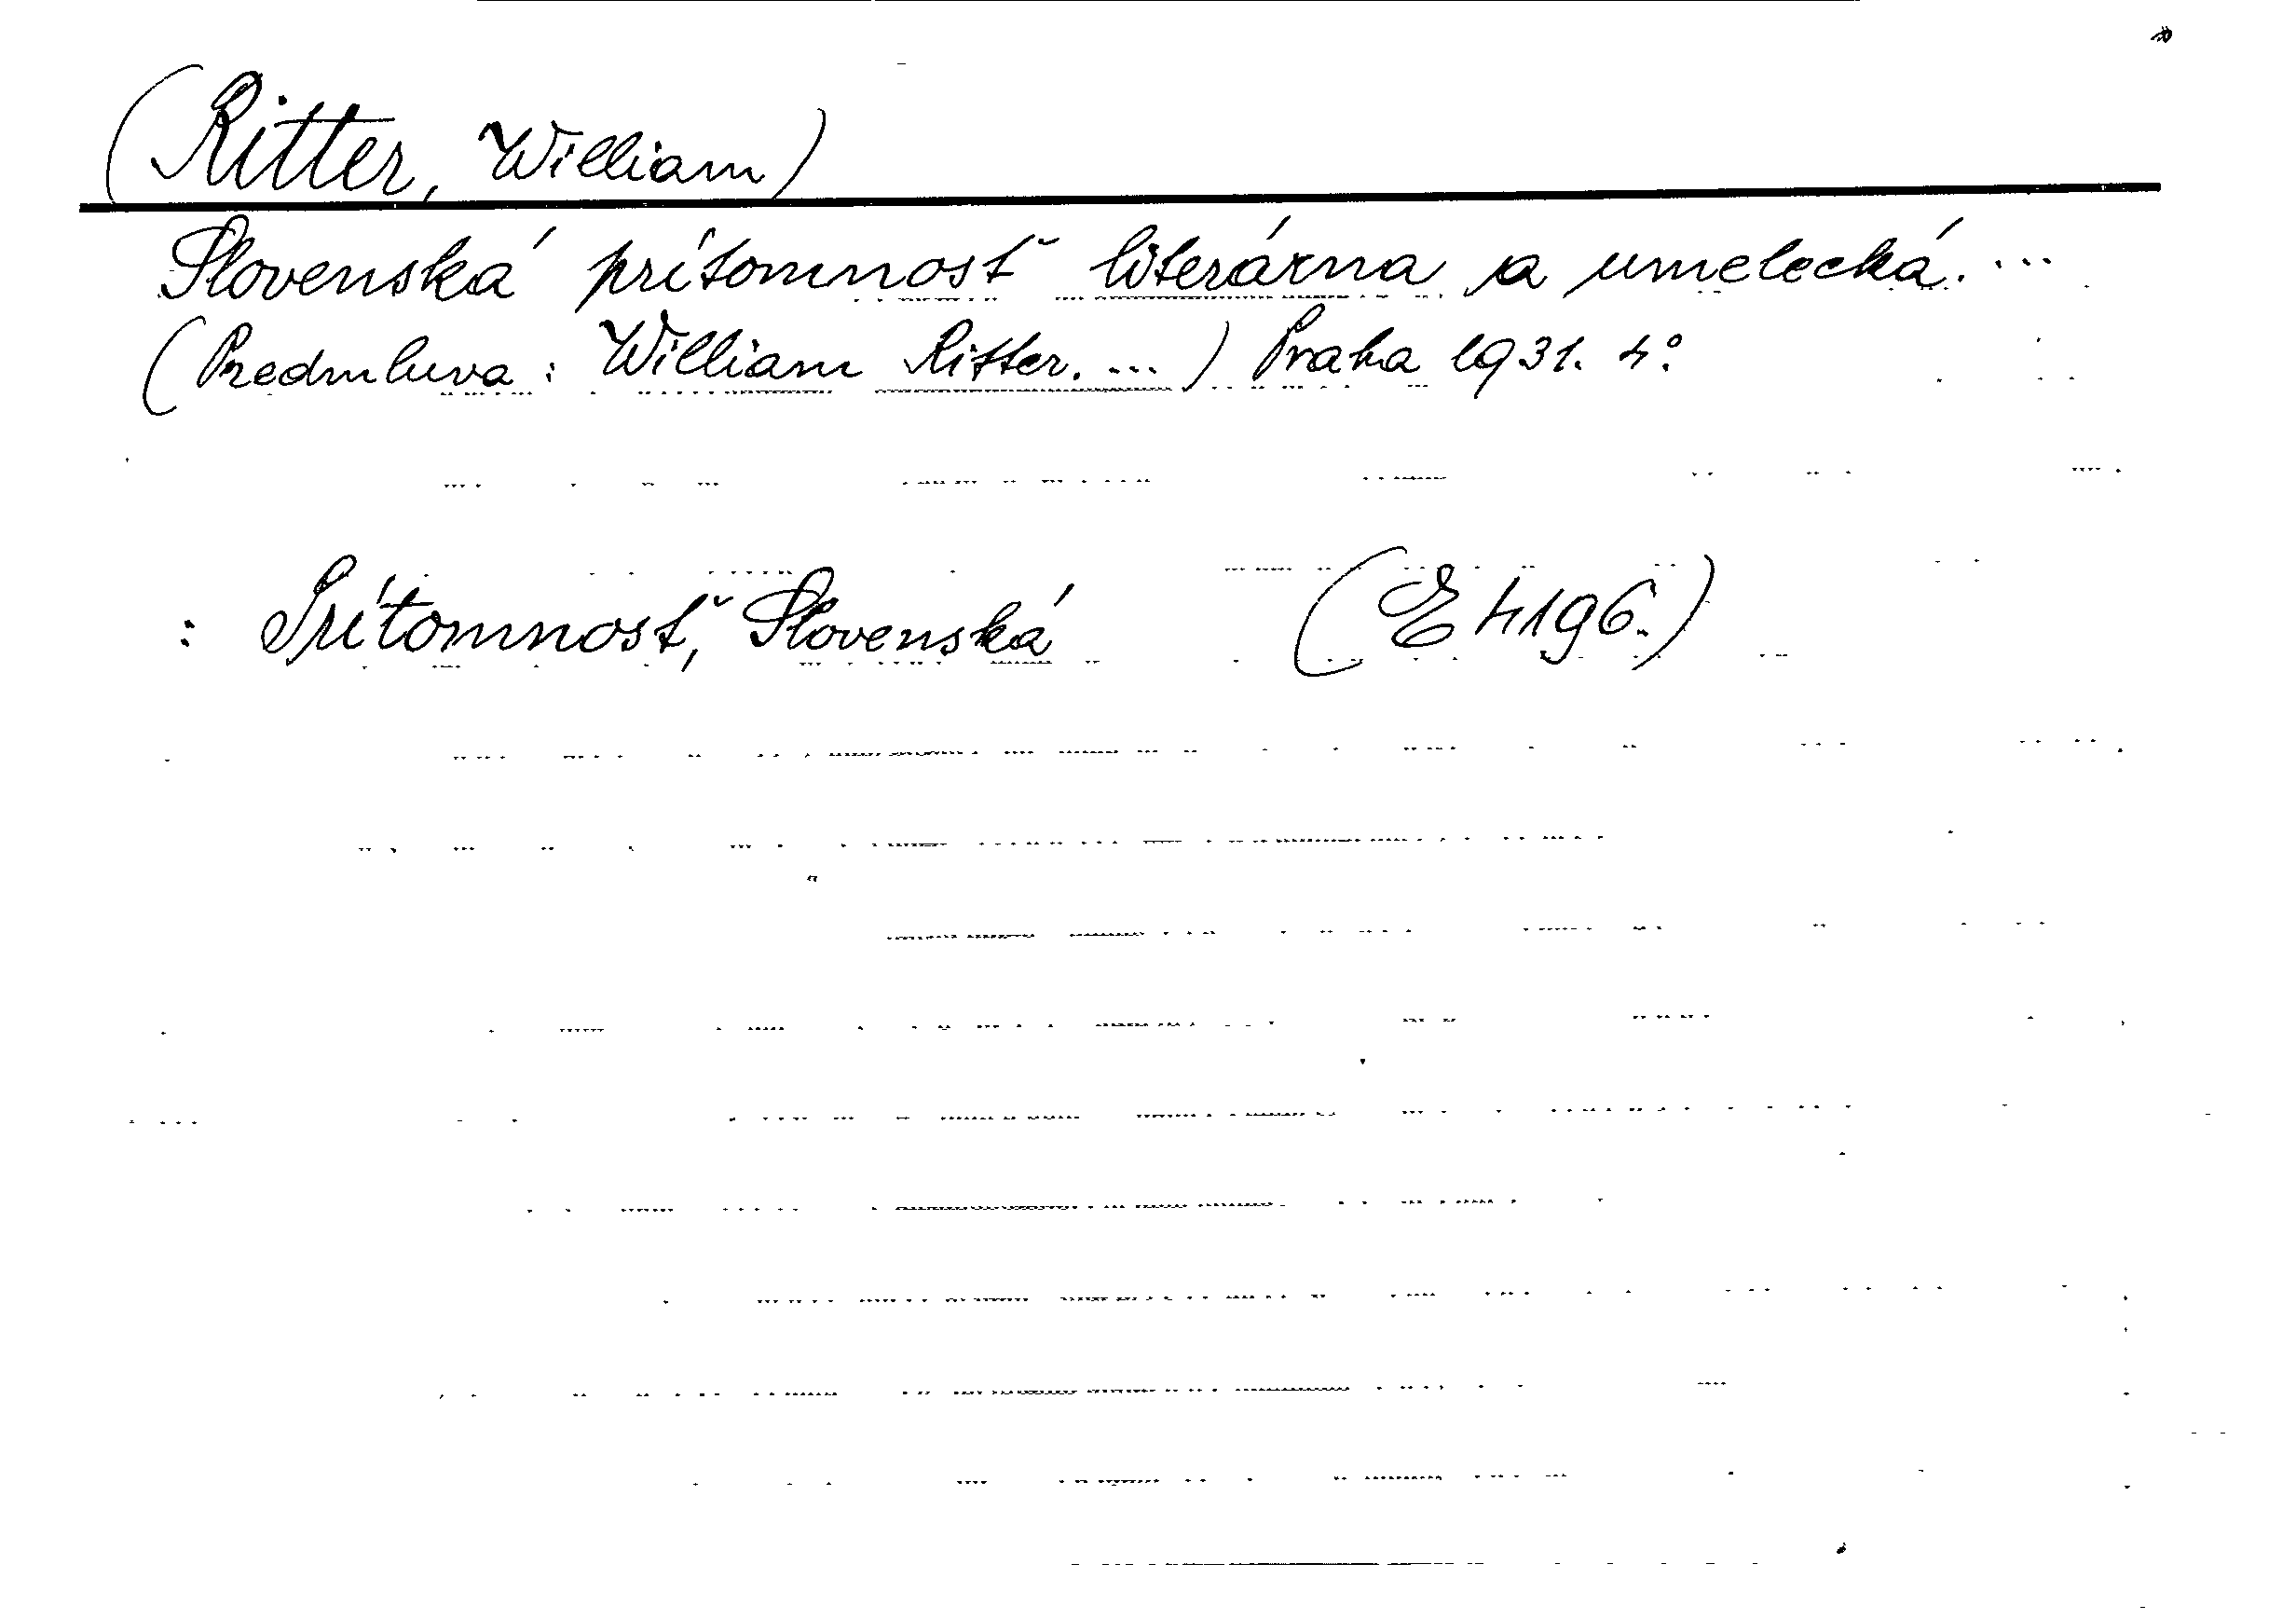 (Ritter, William)
Slovenská prítomnosť literárna a umelecká. ...
(Predmluva: William Ritter. ...) Praha 1931. 4°
: Prítomnosť, Slovenská (E 4196.)